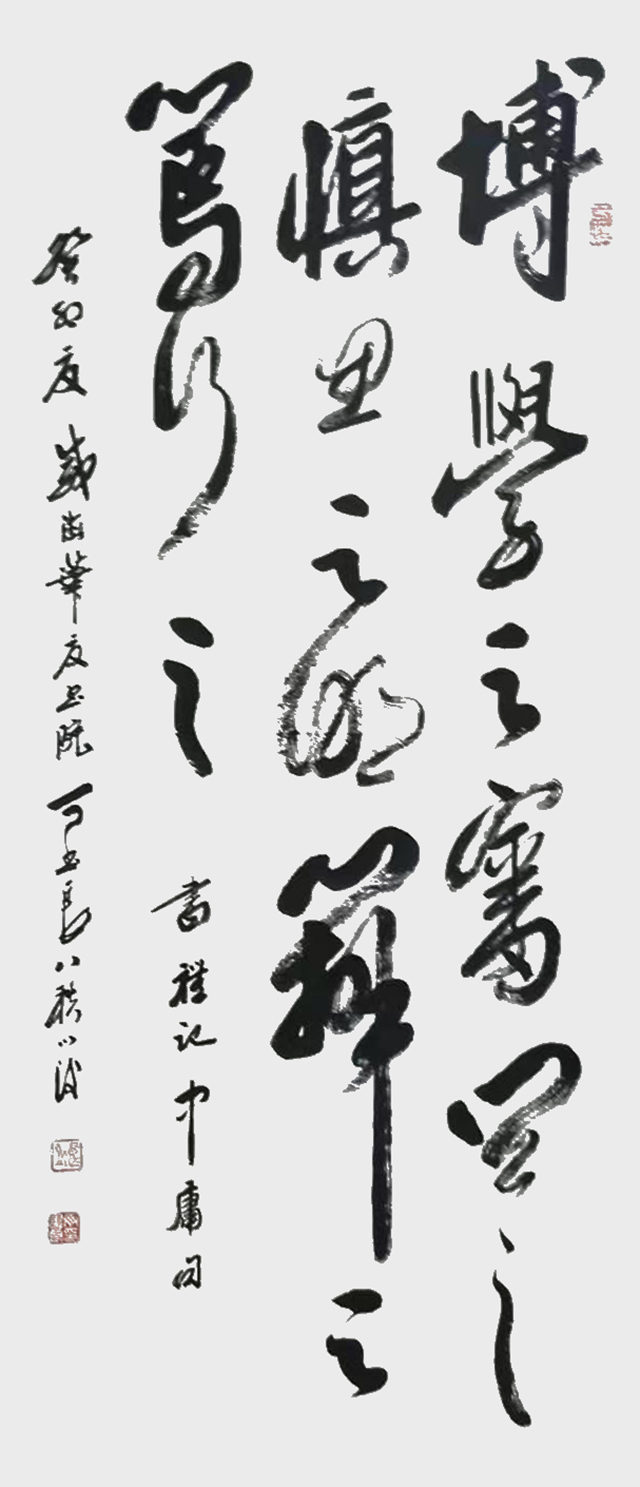 博學之審問之
慎思之明辨之
篤行之 書禮記中庸句
癸卯夏 歲 華夏書院